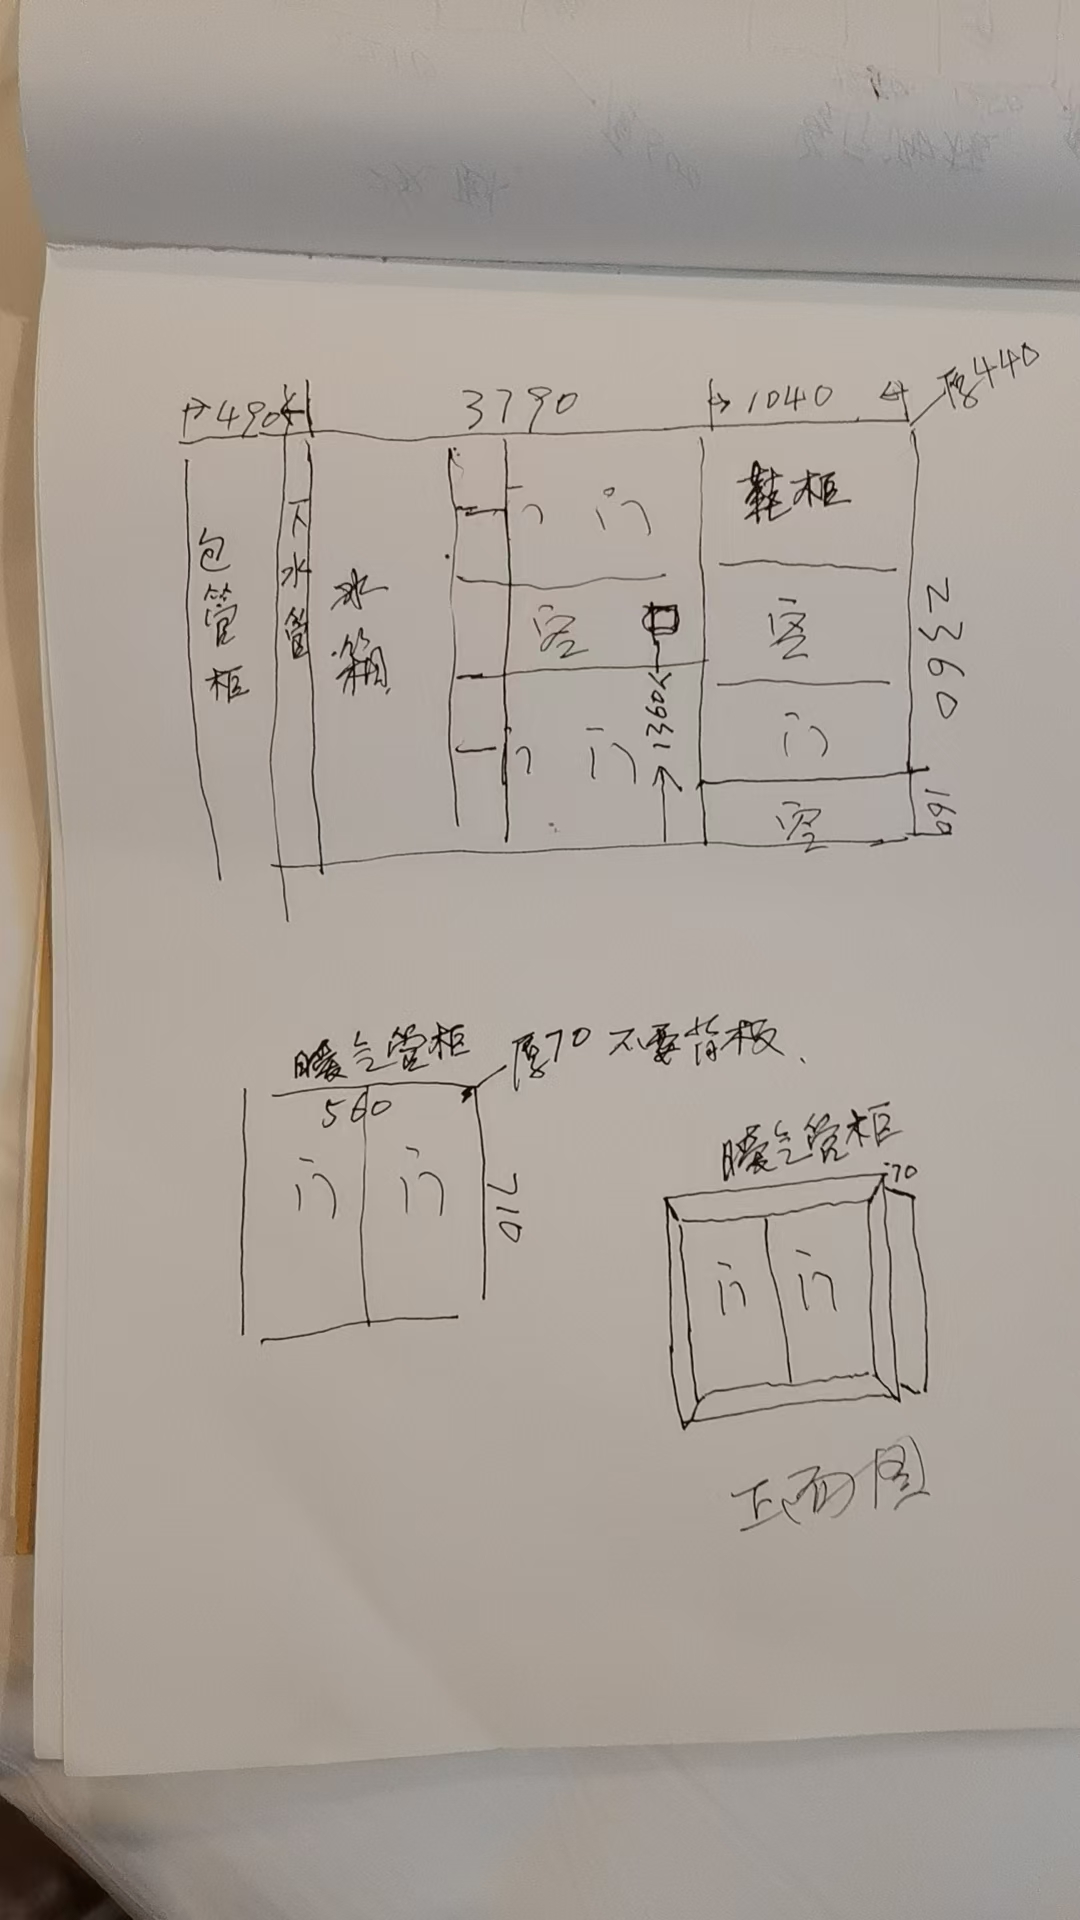 490 3790 1040 厚440
鞋柜
门 门
包管柜
下水管
冰箱
空
空
2360
1360
门
门 门
空
160
暖气管柜 厚70 不要背板、
560
门 门
710
暖气管柜
70
门 门
正面图